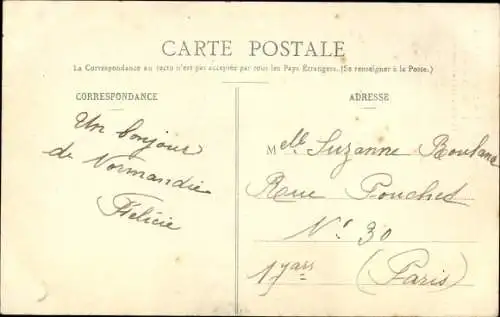 CARTE POSTALE
La Correspondance au recto n'est pas acceptée par tous les Pays Étrangers. (Se renseigner à la Poste.)
CORRESPONDANCE
Un bonjour
de Normandie
Félicie
ADRESSE
Melle Suzanne
Rue Pouchet
N° 30
17 ars (Paris)